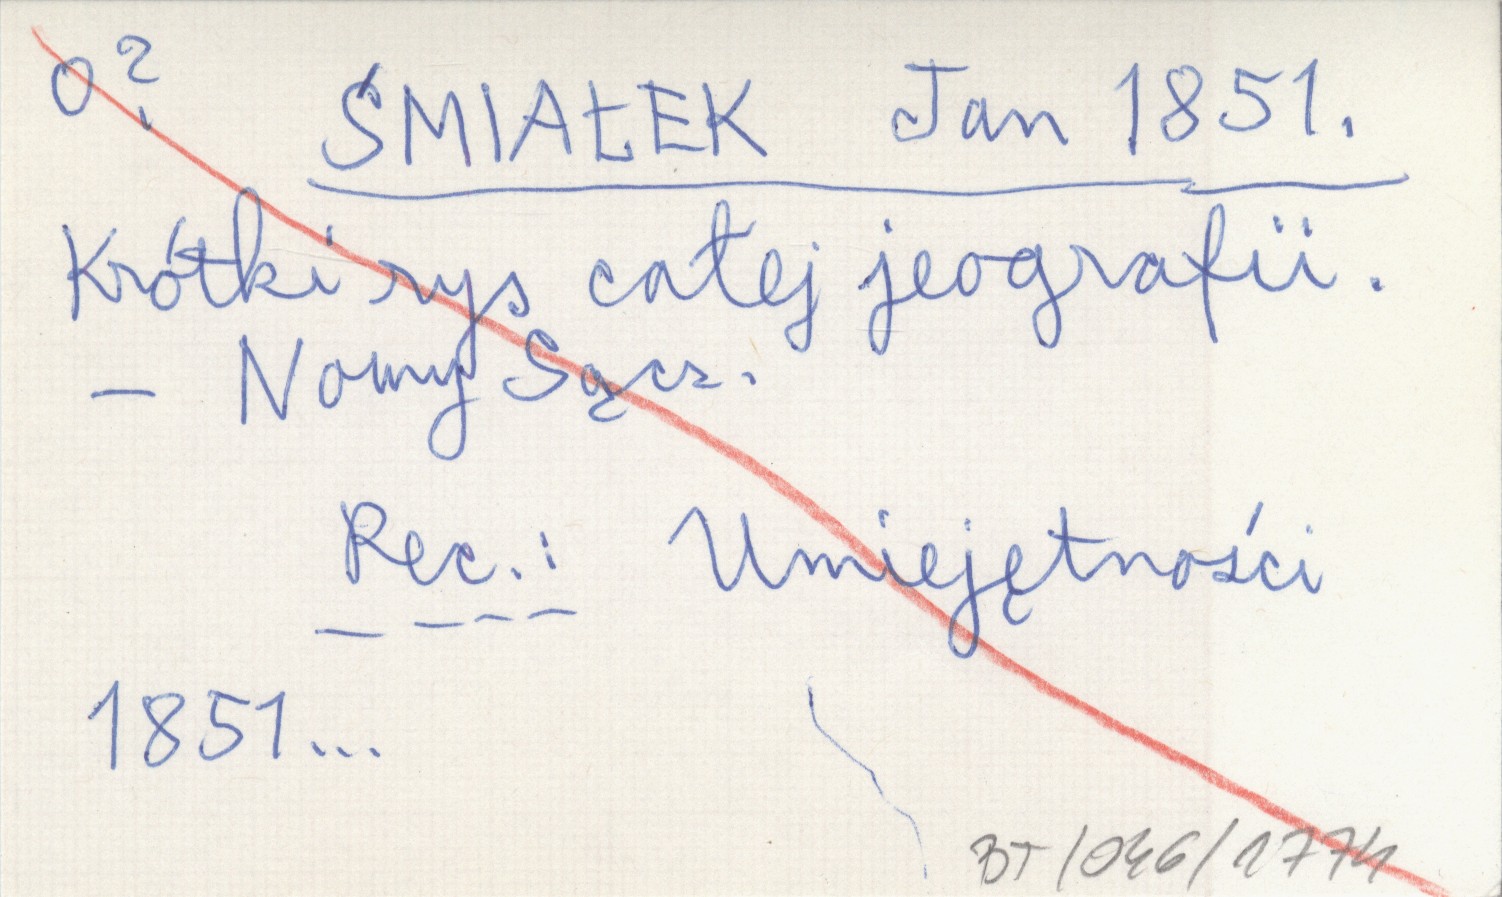 O?
ŚMIAŁEK Jan 1851.
Krótki rys całej jeografii.
– Nowy Sącz.
Rec.: Umiejętności
1851...
BT/046/2774